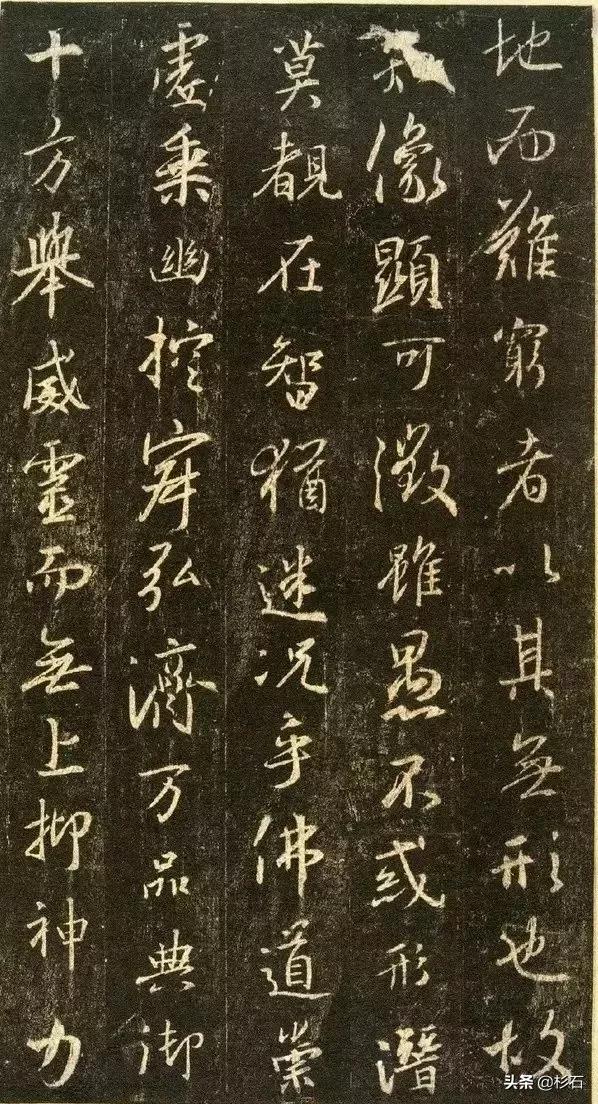 地而難窮者以其無形也故
像顯可徵雖愚不惑形潛
莫覩在智猶迷况乎佛道崇
虛乘幽控寂弘濟万品典御
十方舉威靈而無上抑神力
头条 @杉石